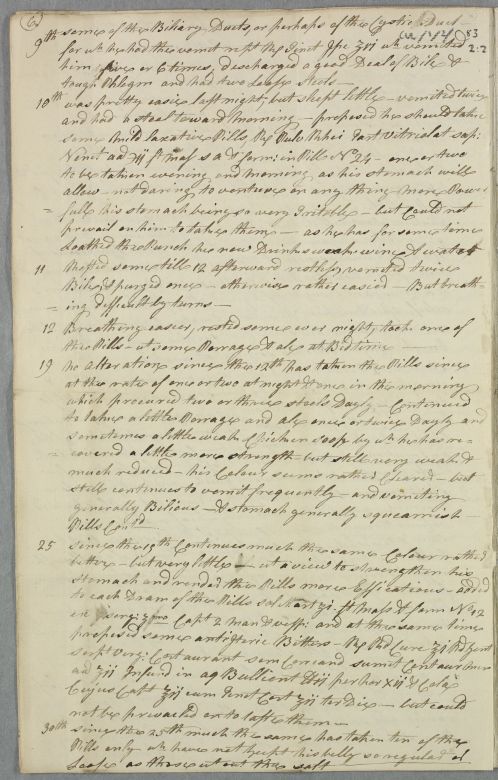 (6)
some of the Biliary Ducts, or perhaps of the Cystic Duct
9th for wh he had the vomit rept
him five or 6 times, discharged a good Deal of Bile &
tough Phlegm and had two Loose stools
10th was pretty easie last night, but slept little - vomited twice
and had a stool toward morning - proposed he should take
some Laxative Pills, Rx Pulv Rhei Tart vitriolat sap:
Venet ad form: in Pills No 24 - one or two
to be taken evening and morning as his stomach will
allow - not daring to venture on any thing more Power
= full his stomach being so very Irritable - but could not
prevail on him to take them - as he has for some time
Loathed the Punch he now Drinks weak wine & water
11 rested some till 12 afterward restless, vomited twice
Bile, & purged once - otherwise rather easier - But breath
= ing difficult by turns -
12 Breathing easier, rested some over night, took one of
the Pills - et some Porrage & ale at Bedtime -
19 no alteration since the 12th has taken the Pills since
at the rate of one or two at night & one in the morning
which procured two or three stools Dayly - Continued
to take a little Porrage and ale once or twice Dayly and
sometimes a little weak Chicken soop by wh he has re=
= covered a little more strength - but still very weak &
much reduced - his Colour seems rather Cleared - but
still continues to vomit frequently - and vomiting
generally Bilious - & stomach generally squeamish -
Pills Contd
25 since the 19th Continues much the same - Colour rather
better - but very little - wt a view to strengthen his
stomach and render the Pills more Efficatious - added
to each Dram of the Pills sal Mart ft mass & form No 12
Capt 2 man & vesp: and at the same time
proposed some antiicteric Bitters - Rx Rad Curc Rad Gent
serp Virg: Centaur
ad Infund in aq Bullient per hor XII & Cola
Cujus Capt cum Tinct Cort ter Die - but could
not be prevailed on to taste them -
30th since the 25th much the same has taken ten of the
Pills only wh have not kept his belly so regulated
Loose as those wtout the salt
83
2:2